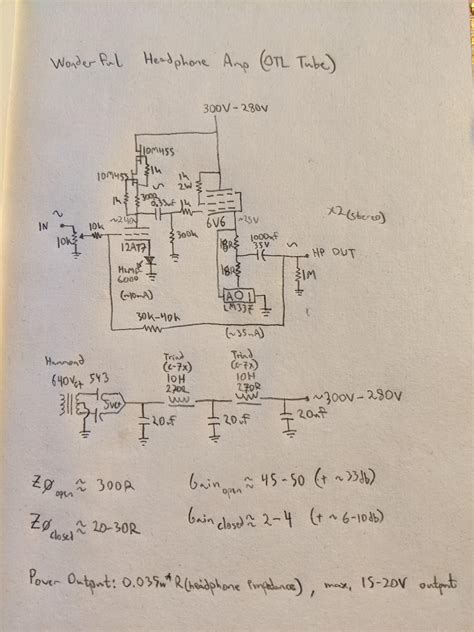 Wonderful Headphone Amp (OTL Tube)
300V-280V
10M45S
1k
10M45S
1k
2W
1k
300R
0.33uf
1k
6V6
~25V
x2 (stereo)
IN
10k
10k
~240V
12AT7
300k
18R
1000uf
35V
HP OUT
18R
1M
(~10mA)
A O I
LM337
30k-40k
(~35mA)
Hammond
640Vct
5Vct
Triad
(c-7x)
10H
270R
Triad
(c-7x)
10H
270R
~300V-280V
20uf
20uf
20uf
ZØopen ≈ 300R
Gainopen ≈ 45-50 (+ ~33db)
ZØclosed ≈ 20-30R
Gainclosed ≈ 2-4 (+ ~6-10db)
Power Output: 0.035ω² R(headphone impedance), max. 15-20V output